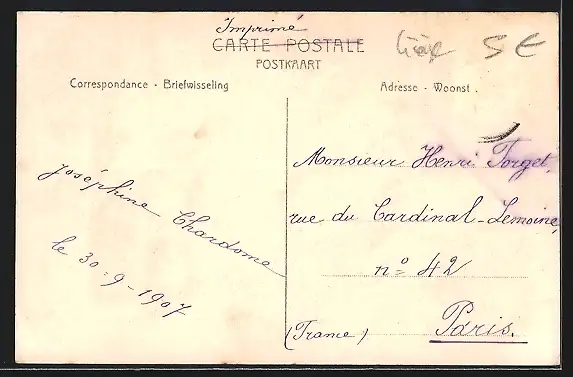 Imprimé
CARTE POSTALE
POSTKAART
Liège 5 €
Correspondance - Briefwisseling
Adresse - Woonst.
Joséphine Chardome
le 30-9-1907
Monsieur Henri Forget,
rue du Cardinal-Lemoine,
nº 42
(France) Paris.